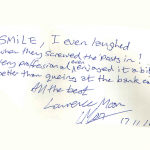 SMILE, I even laughed
when they screwed the posts in!
very proffessional even enjoyed it a bit
better than queing at the bank ea
All the best
Lawrence Moon
17.11.